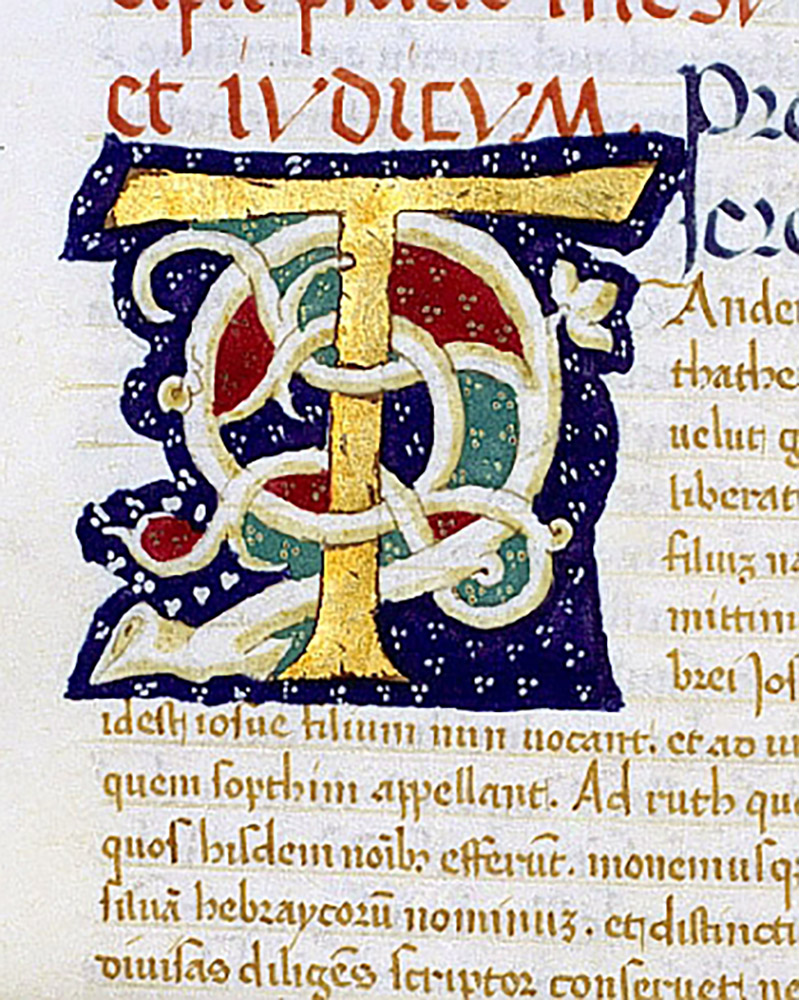 et IVDICVM. Pro
T
Ande
thathe
uelut g
liberat
filiuz na
mittim
brei Jos
idest iosue filium nun uocant. et ad
quem sopthim appellant. Ad ruth que
quos hisdem noīb; efferūt. monemusq;
siluā hebraycorū nominuz. et distincti
diuisas diligēs scriptor conseruet ne